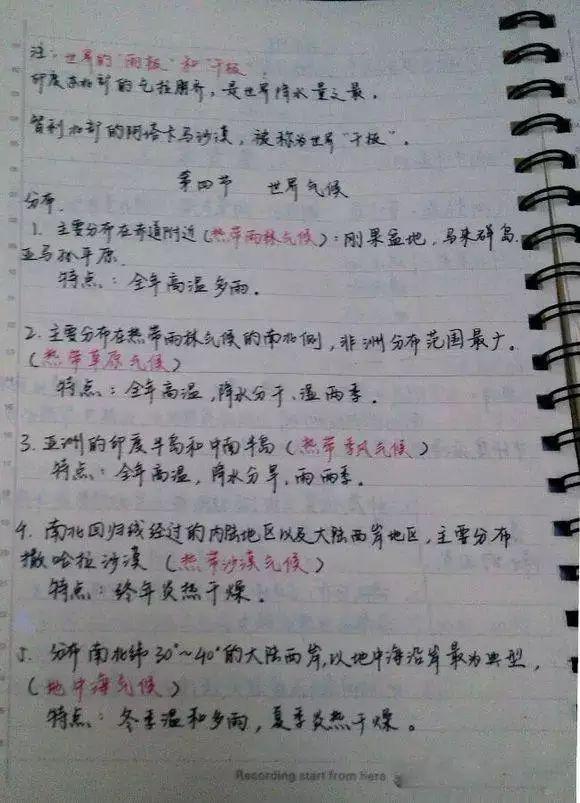 注：世界的“雨极”和“干极”
印度东北部的乞拉朋齐，是世界降水量之最。
智利北部的阿塔卡马沙漠，被称为世界“干极”。
第四节 世界气候
分布.
1. 主要分布在赤道附近(热带雨林气候)：刚果盆地，马来群岛
亚马孙平原.
特点：全年高温多雨。
2. 主要分布在热带雨林气候的南北侧，非洲分布范围最广。
(热带草原气候)
特点：全年高温，降水分干、湿两季。
3. 亚洲的印度半岛和中南半岛(热带季风气候)
特点：全年高温，降水分旱、雨两季。
4. 南北回归线经过的内陆地区以及大陆西岸地区，主要分布
撒哈拉沙漠 (热带沙漠气候)
特点：终年炎热干燥.
5. 分布南北纬30°~40°的大陆西岸,以地中海沿岸最为典型，
(地中海气候)
特点：冬季温和多雨，夏季炎热干燥。
Recording start from here